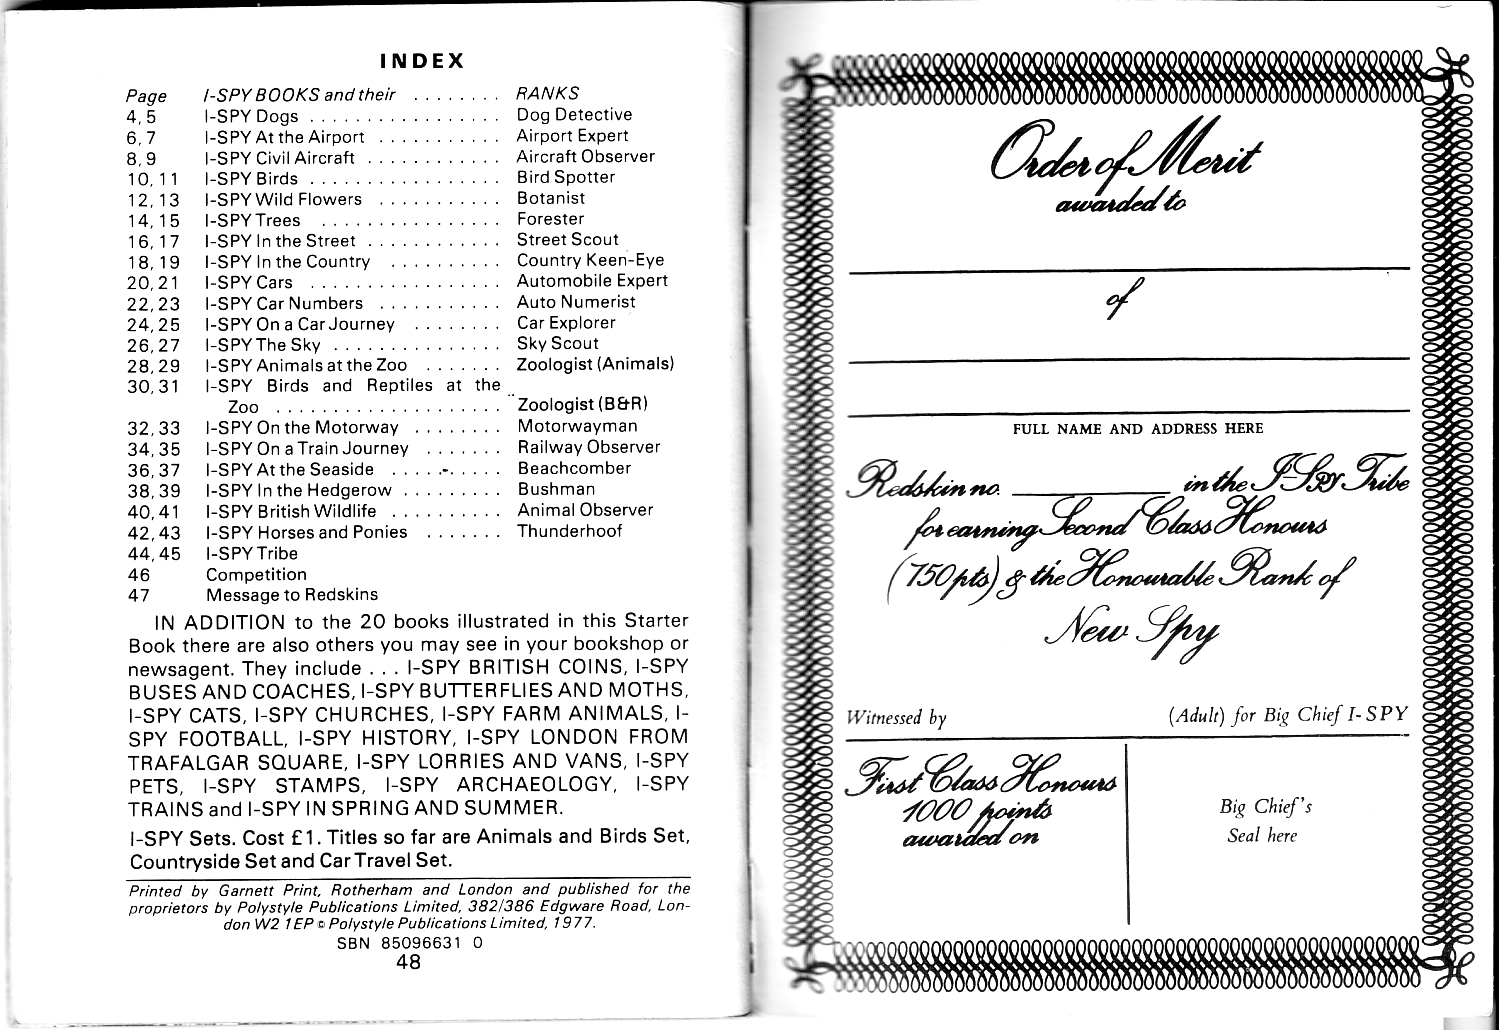 INDEX
Page I-SPY BOOKS and their . . . . . . . . RANKS
4, 5 I-SPY Dogs . . . . . . . . . . . . . . . . . Dog Detective
6, 7 I-SPY At the Airport . . . . . . . . . . . Airport Expert
8, 9 I-SPY Civil Aircraft . . . . . . . . . . . . Aircraft Observer
10, 11 I-SPY Birds . . . . . . . . . . . . . . . . . Bird Spotter
12, 13 I-SPY Wild Flowers . . . . . . . . . . . Botanist
14, 15 I-SPY Trees . . . . . . . . . . . . . . . . Forester
16, 17 I-SPY In the Street . . . . . . . . . . . . Street Scout
18, 19 I-SPY In the Country . . . . . . . . . . Country Keen-Eye
20, 21 I-SPY Cars . . . . . . . . . . . . . . . . . Automobile Expert
22, 23 I-SPY Car Numbers . . . . . . . . . . . Auto Numerist
24, 25 I-SPY On a Car Journey . . . . . . . . Car Explorer
26, 27 I-SPY The Sky . . . . . . . . . . . . . . . Sky Scout
28, 29 I-SPY Animals at the Zoo . . . . . . . Zoologist (Animals)
30, 31 I-SPY Birds and Reptiles at the
Zoo . . . . . . . . . . . . . . . . . . . . Zoologist (B&R)
32, 33 I-SPY On the Motorway . . . . . . . . Motorwayman
34, 35 I-SPY On a Train Journey . . . . . . . Railway Observer
36, 37 I-SPY At the Seaside . . . . . . . . . . Beachcomber
38, 39 I-SPY In the Hedgerow . . . . . . . . . Bushman
40, 41 I-SPY British Wildlife . . . . . . . . . . Animal Observer
42, 43 I-SPY Horses and Ponies . . . . . . . Thunderhoof
44, 45 I-SPY Tribe
46 Competition
47 Message to Redskins
IN ADDITION to the 20 books illustrated in this Starter
Book there are also others you may see in your bookshop or
newsagent. They include . . . I-SPY BRITISH COINS, I-SPY
BUSES AND COACHES, I-SPY BUTTERFLIES AND MOTHS,
I-SPY CATS, I-SPY CHURCHES, I-SPY FARM ANIMALS, I-
SPY FOOTBALL, I-SPY HISTORY, I-SPY LONDON FROM
TRAFALGAR SQUARE, I-SPY LORRIES AND VANS, I-SPY
PETS, I-SPY STAMPS, I-SPY ARCHAEOLOGY, I-SPY
TRAINS and I-SPY IN SPRING AND SUMMER.
I-SPY Sets. Cost £1. Titles so far are Animals and Birds Set,
Countryside Set and Car Travel Set.
Printed by Garnett Print, Rotherham and London and published for the
proprietors by Polystyle Publications Limited, 382/386 Edgware Road, Lon-
don W2 1EP © Polystyle Publications Limited, 1977.
SBN 85096631 0
48
Order of Merit
awarded to
of
FULL NAME AND ADDRESS HERE
Redskin no. ____________ in the I-SPY Tribe
for earning Second Class Honours
(750 pts) & the Honourable Rank of
New Spy
Witnessed by (Adult) for Big Chief I-SPY
First Class Honours
1000 points
awarded on
Big Chief's
Seal here